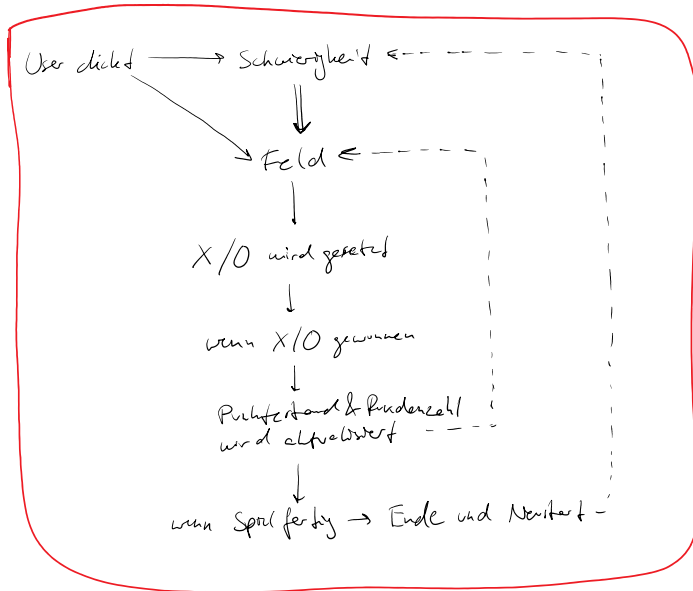 User clickt → Schwierigkeit
Feld
X/O wird gesetzt
wenn X/O gewonnen
Punktestand & Rundenzahl
wird aktualisiert
wenn Spiel fertig → Ende und Neustart